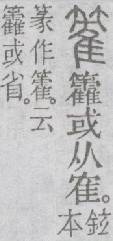 篧 籱或从隺。鉉
本
篆作籗。云
籱或省。